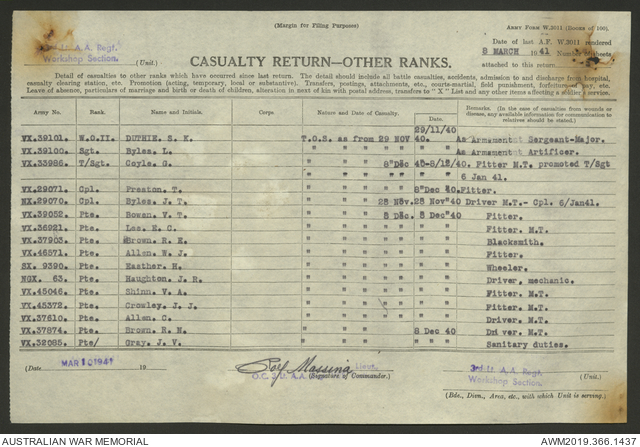 (Margin for Filing Purposes)
ARMY FORM W.3011 (BOOKS OF 100).
3rd Lt A.A. Regt. Workshop Section. (Unit.)
Date of last A.F. W.3011 rendered
8 MARCH 1941 Number of sheets
attached to this return
CASUALTY RETURN—OTHER RANKS.
Detail of casualties to other ranks which have occurred since last return. The detail should include all battle casualties, accidents, admission to and discharge from hospital,
casualty clearing station, etc. Promotion (acting, temporary, local or substantive). Transfers, postings, attachments, etc., courts-martial, field punishment, forfeiture of pay, etc.
Leave of absence, particulars of marriage and birth or death of children, alteration in next of kin with postal address, transfers to "X" List and any other items affecting a soldier's service.
Army No. Rank. Name and Initials. Corps. Nature and Date of Casualty. Date. Remarks. (In the case of casualties from wounds or disease, any available information for communication to relatives should be stated.)
29/11/40
VX.39101. W.O.II. DUTHIE. S. K. T.O.S. as from 29 NOV 40. As Armament Sergeant-Major.
VX.39100. Sgt. Byles. L. " " " " " As Armament Artificer.
VX.33986. T/Sgt. Coyle. G. " " " 8"Dec 40-8/12/40. Fitter M.T. promoted T/Sgt
" " " " " 6 Jan 41.
VX.29071. Cpl. Preston. T. " " " 8"Dec 40. Fitter.
NX.29070. Cpl. Byles. J. T. " " " 28 Nov. 28 Nov"40 Driver M.T.- Cpl. 6/Jan41.
VX.39052. Pte. Bowen. V. T. " " " 8 Dec. 8 Dec"40 Fitter.
VX.36921. Pte. Lee. E. C. " " " " " Fitter. M.T.
VX.37903. Pte. Brown. R. E. " " " " " Blacksmith.
VX.46571. Pte. Allen. W. J. " " " " " Fitter.
SX. 9390. Pte. Easther. H. " " " " " Wheeler.
NGX. 63. Pte. Haughton. J. R. " " " " " Driver, mechanic.
VX.45046. Pte. Shinn. V. A. " " " " " Fitter. M.T.
VX.45372. Pte. Crowley. J. J. " " " " " Fitter. M.T.
VX.37610. Pte. Allan. C. " " " " " Driver. M.T.
VX.37874. Pte. Brown. R. N. " " " " 8 Dec 40 Driver. M.T.
VX.32085. Pte/ Gray. J. V. " " " " " Sanitary duties.
(Date MAR 10 1941 19 Rolf Massina Lieut. (Signature of Commander.) 3rd Lt A.A. Regt. Workshop Section. (Unit.)
(Bde., Divn., Area, etc., with which Unit is serving.)
AUSTRALIAN WAR MEMORIAL AWM2019.366.1437